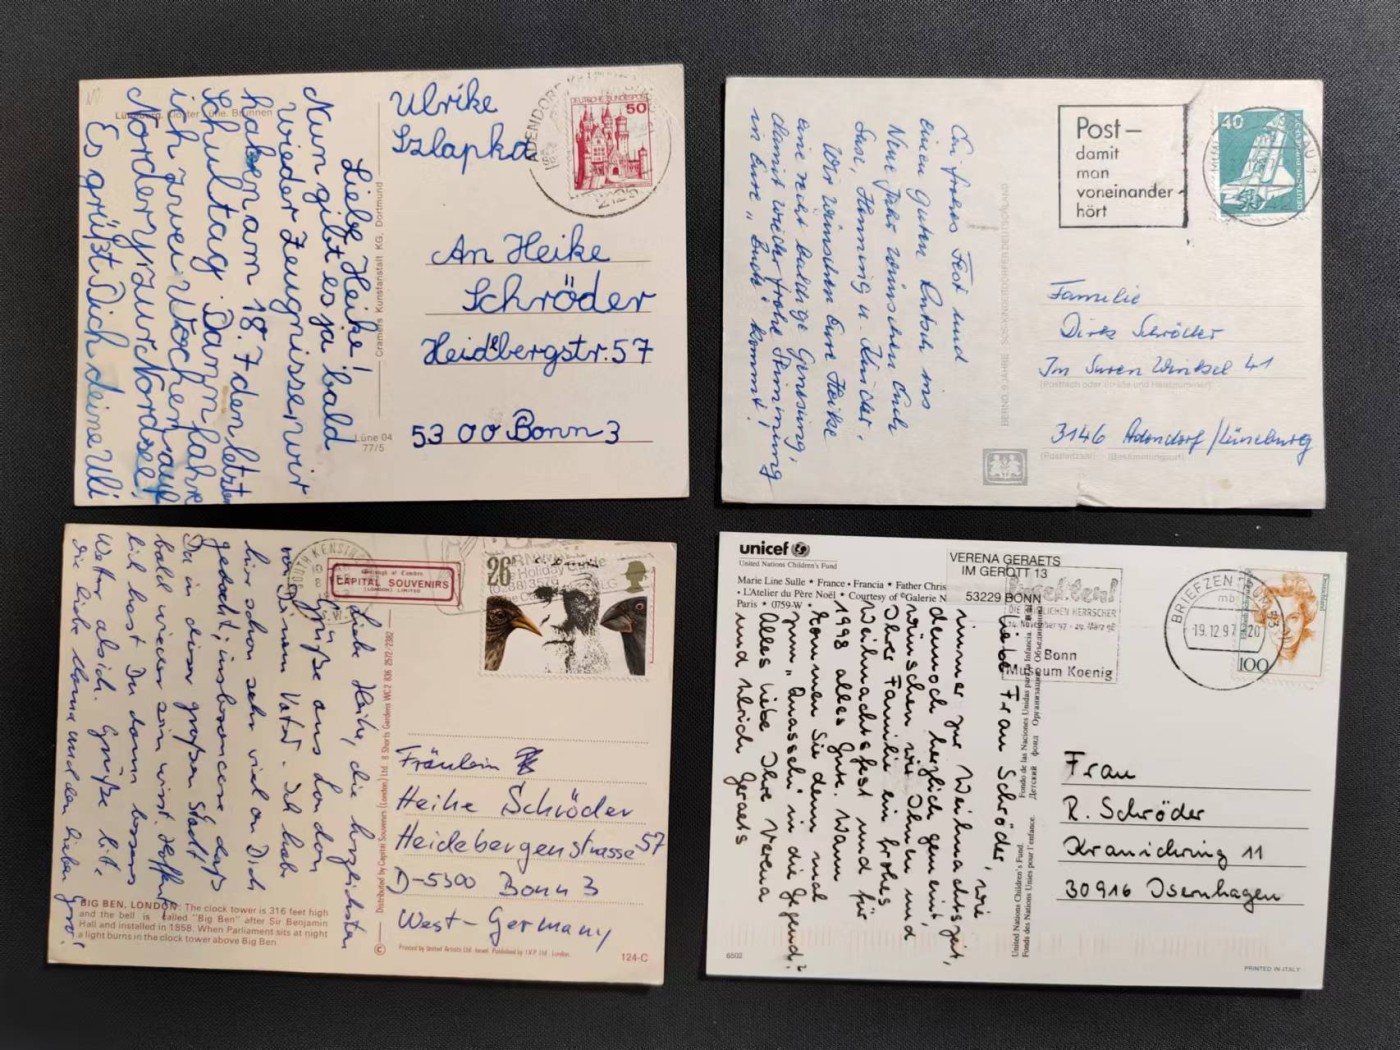 Ulrike
Szlapka
Lüneburg, Kloster Lüne. Brunnen
Liebe Heike!
Nun gibt es ja bald
wieder Zeugnisse wir
haben am 18.7 den letzten
Schultag. Dann fahre
ich zwei Wochen auf
Norderney zur Nordsee!
Es grüßt Dich deine Uli
Cramers Kunstanstalt KG, Dortmund
Lüne 04
77/5
DEUTSCHE BUNDESPOST
50
ADENDORF
2125
An Heike
Schröder
Heidbergstr. 57
5300 Bonn 3
Ein frohes Fest und
einen guten Rutsch ins
Neue Jahr wünschen Euch
Susi, Henning u. Kinder.
Wir wünschen Eure Heike
eine recht baldige Genesung,
damit wieder frohe Stimmung
in Eure "Bude" kommt!
BERND, 9 JAHRE SOS-KINDERDÖRFER DEUTSCHLAND
Post-
damit
man
voneinander
hört
40
Familie
Dirks Schröder
Im Suren Winkel 41
(Postfach oder Straße und Hausnummer)
3146 Adendorf/Lüneburg
(Postleitzahl) (Bestimmungsort)
CAPITAL SOUVENIRS
(LONDON) LIMITED
26
Liebe Heike, die herzlichsten
Grüße aus London
von Deinem Vater. Ich habe
hier schon sehr viel an Dich
gedacht; insbesondere, daß
Du in dieser großen Stadt
bald wieder sein wirst. Hoffent-
lich hast Du dann besseres
Wetter als ich. Grüße bitte
die liebe Mama und den lieben
BIG BEN, LONDON: The clock tower is 316 feet high
and the bell is called "Big Ben" after Sir Benjamin
Hall and installed in 1858. When Parliament sits at night
a light burns in the clock tower above Big Ben.
© Distributed by Capital Souvenirs (London) Ltd. 8 Shorts Gardens WC2 836 2572/2382
Printed by United Artists Ltd. Israel. Published by J.K.F Ltd. London.
124-C
Fräulein
Heike Schröder
Heidebergenstrasse 57
D-5300 Bonn 3
West-Germany
unicef
United Nations Children's Fund
Marie Line Sulle • France • Francia • Father Chris
• L'Atelier du Père Noël • Courtesy of ©Galerie N
Paris • 0759-W •
VERENA GERAETS
IM GEROTT 13
53229 BONN
Bonn
Museum Koenig
BRIEFZENTRUM
-19.12.97-20
100
Liebe Frau Schröder,
nimmer zur Weihnachtszeit, wie
dennoch herzlich gemeint,
wünschen wir Ihnen und
Ihrer Familie ein frohes
Weihnachtsfest und für
1998 alles Gute. Wann
kommen Sie denn mal
zum "Quasseln" in die Gegend?
Alles Liebe Ihre Verena
und Ulrich Geraets
United Nations Children's Fund.
Fonds des Nations Unies pour l'enfance.
Fondo de las Naciones Unidas para la Infancia.
Детский фонд Организации Объединенных
Frau
R. Schröder
Kranichring 11
30916 Isernhagen
6502
PRINTED IN ITALY